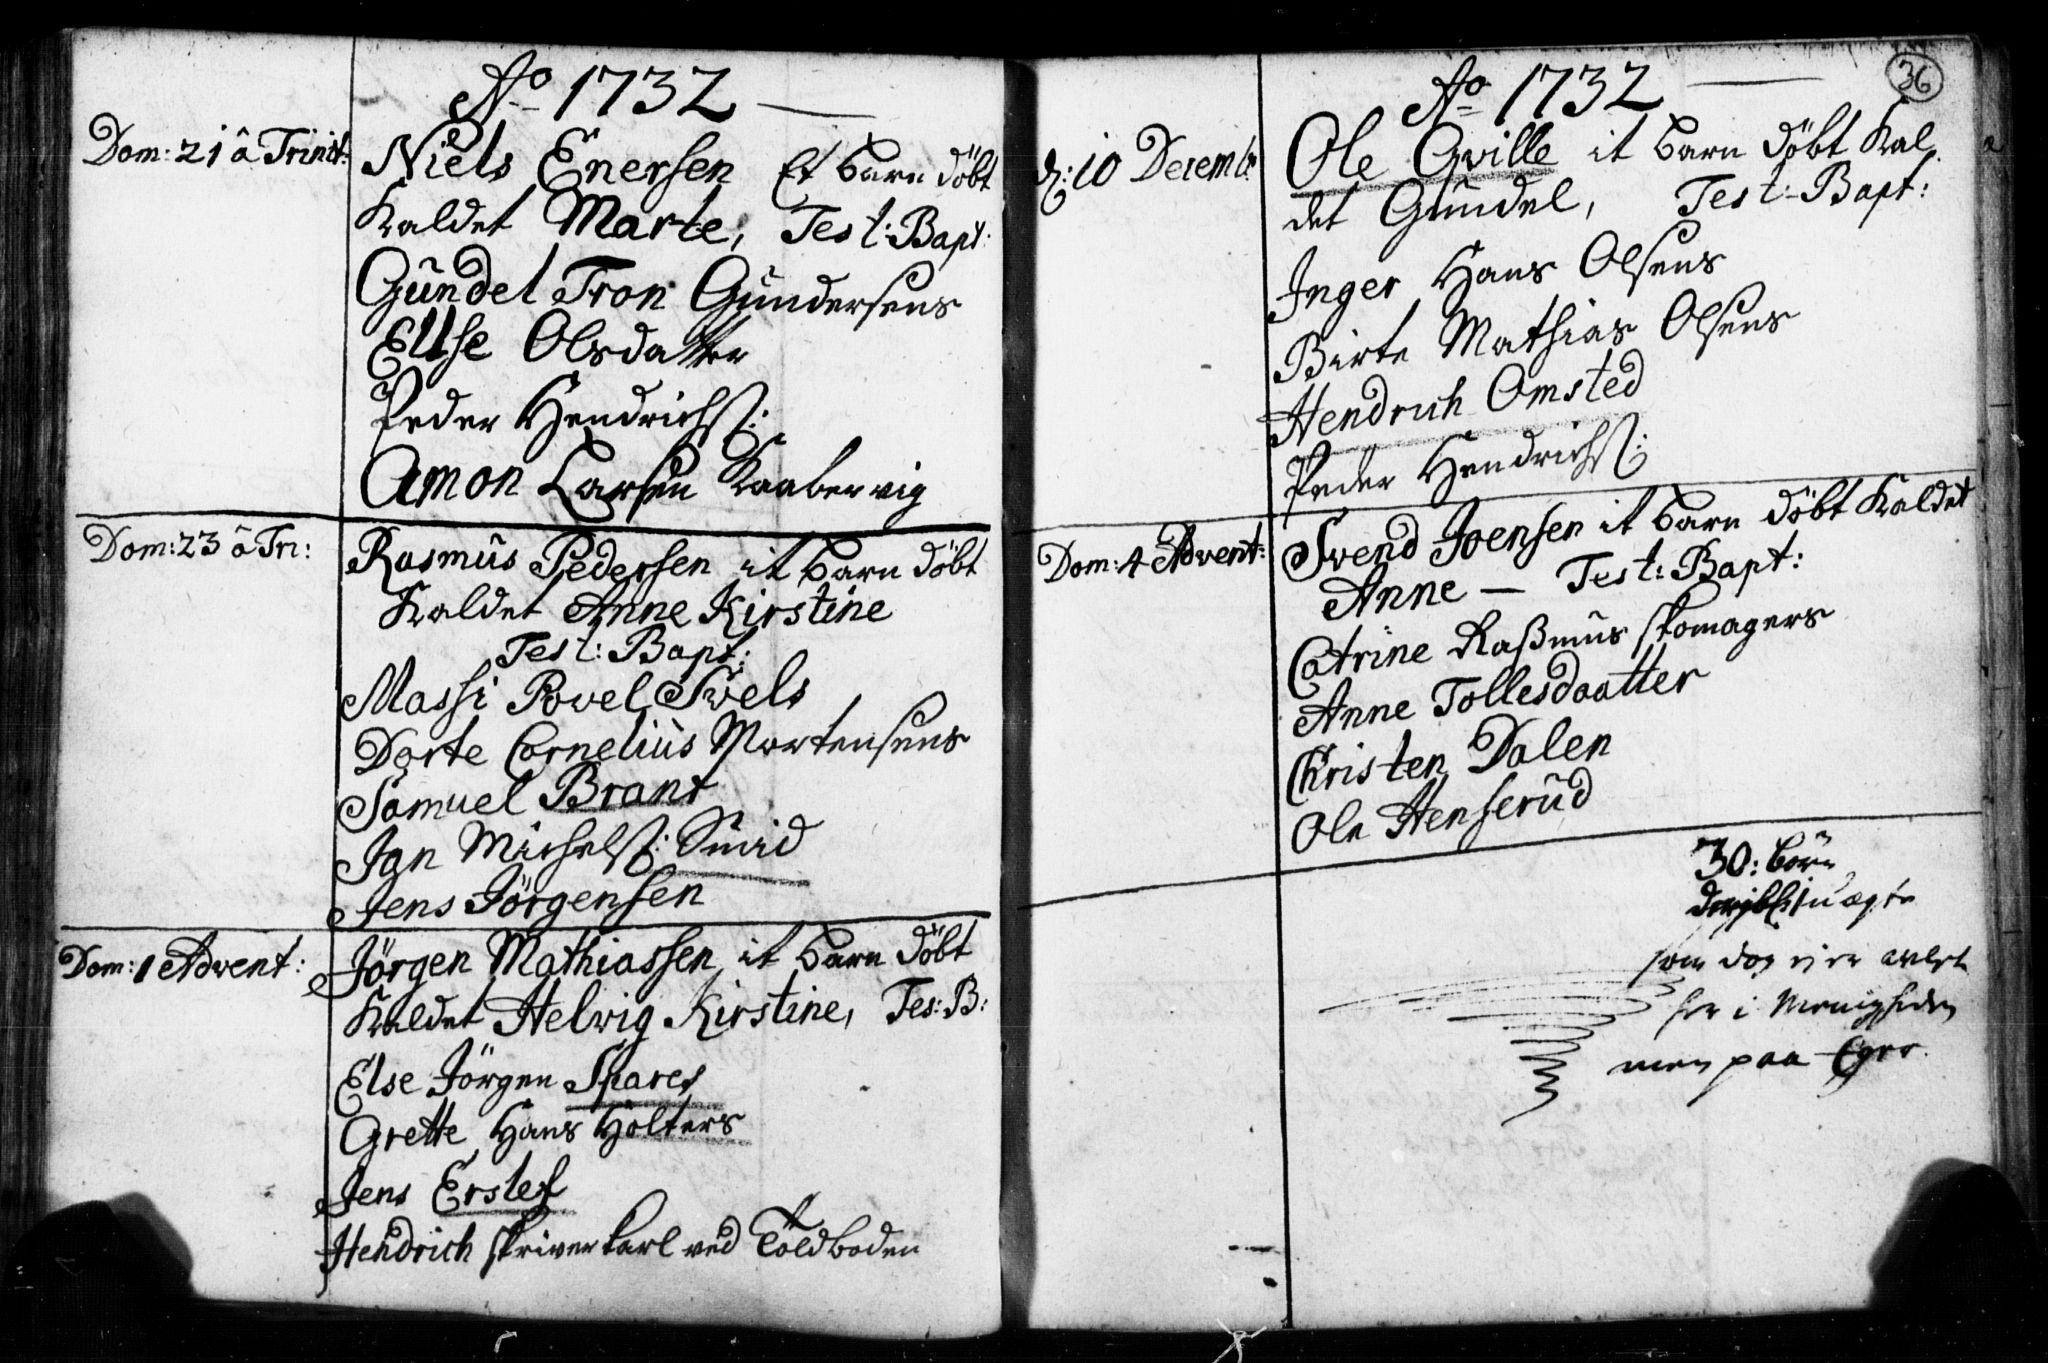 Ao 1732
Dom: 21 â Trinit:
Niels Enersen Et barn döbt
Kaldet Marte, Test: Bapt:
Gundel Tron Gundersens
Ellse Olsdatter
Peder Hendrichs:
Amon Larsen Kaabervig
Dom: 23 â Tri:
Rasmus Pedersen it barn döbt
Kaldet Anne Kirstine
Test: Bapt:
Massi Povel Svels
Dorte Cornelius Mortensens
Samuel Brant
Jan Michels: Smid
Jens Jörgensen
Dom: 1 Advent:
Jörgen Mathiassen it barn döbt
Kaldet Helwig Kirstine, Tes: B:
Else Jörgen Spares
Grette Hans Holters
Jens Erslef
Hendrich skriver karl ved Toldboden
36
Ao 1732
d: 10 Decemb:
Ole Qville it barn döbt Kal
det Gundel, Test: Bapt:
Inger Hans Olsens
Birte Mathias Olsens
Hendrich Omsted
Peder Hendrichs:
Dom: 4 Advent:
Svend Joensen it barn döbt Kaldet
Anne — Test: Bapt:
Catrine Rasßmus skomagers
Anne Tollesdaatter
Christen Dalen
Ole Henserud
30: börn
1 uægte
som dog ej er avlet
her i Menigheden
men paa Eger.